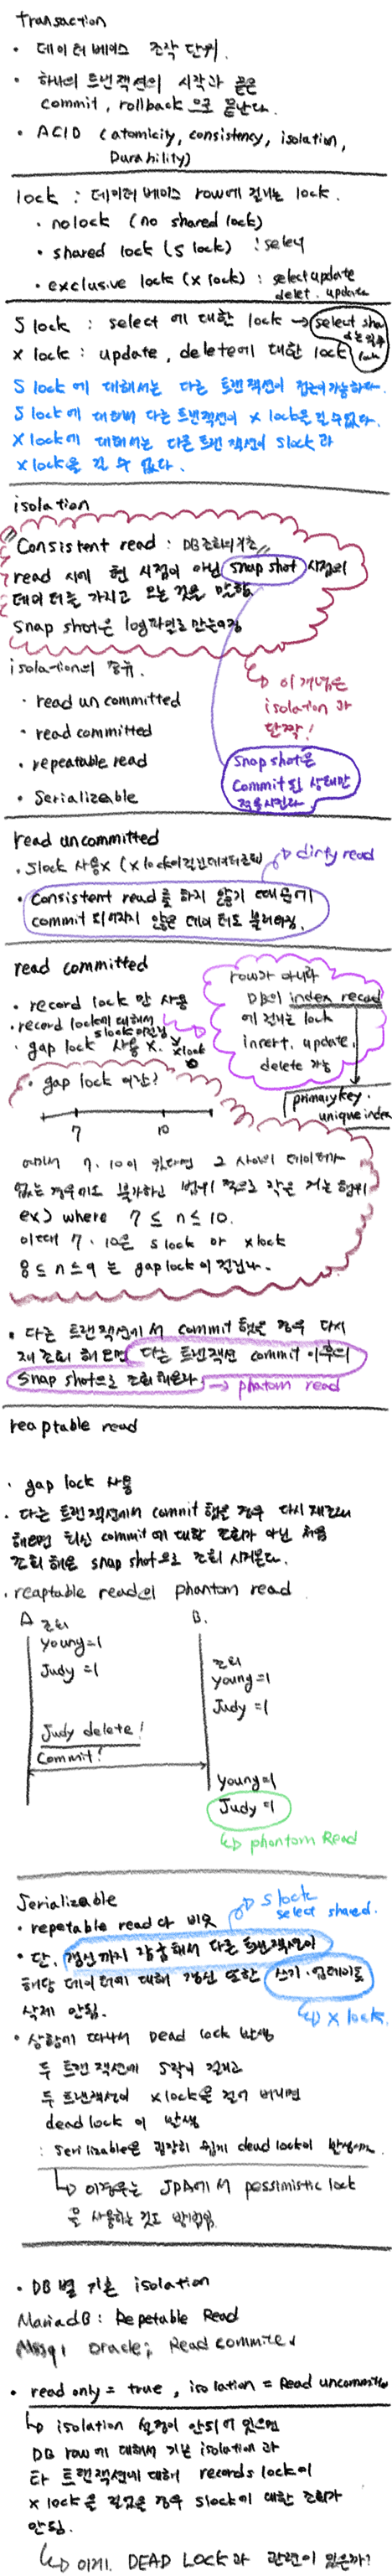 transaction
• 데이터베이스 조작 단위.
• 하나의 트랜잭션의 시작과 끝은
commit, rollback으로 끝난다.
• ACID (atomicity, consistency, isolation,
Durability)
lock : 데이터베이스 row에 걸리는 lock.
• nolock (no shared lock)
• shared lock (s lock) : select
• exclusive lock (x lock) : select update
delet. update
S lock : select에 대한 lock → select
x lock : update, delete에 대한 lock
S lock에 대해서는 다른 트랜잭션이 접근이 가능하다.
S lock에 대해서 다른 트랜잭션이 x lock을 걸 수 없다.
x lock에 대해서는 다른 트랜잭션이 slock과
x lock을 걸 수 없다.
isolation
Consistent read : DB 조회의 기초
read 시에 현 시점이 아닌 snap shot 시점의
데이터를 가지고 오는 것을 말함
snap shot은 log파일로 만든
isolation의 종류.
이 개념은
isolation과
단짝!
• read un committed
• read committed
• repeatable read
• Serializeable
snap shot은
commit된 상태만
적용시킨다
read uncommitted
dirty read
• slock 사용x (x lock이 걸린 데이터
• Consistent read를 하지 않기 때문에
commit 되어지지 않은 데이터도 불러와짐.
read committed
• record lock만 사용
• record lock에 대해서
slock
xlock
• gap lock 사용 x.
row가 아니라
DB의 index record
에 걸리는 lock
insert. update.
delete 가능
primary key.
unique index
• gap lock 이란?
7 10
여기서 7. 10이 있다면 그 사이의 데이터가
없는 경우에도 불구하고 범위적으로 락을 거는 행위
ex) where 7 ≤ n ≤ 10.
이때 7. 10은 s lock or x lock
8 ≤ n ≤ 9 는 gap lock이 걸린다.
• 다른 트랜잭션에서 commit 했을 경우 다시
재조회 해오면 다른 트랜잭션 commit 이후의
snap shot으로 조회해온다 → phatom read
reaptable read
• gap lock 사용
• 다른 트랜잭션에서 commit 했을 경우 다시 재조회
해오면 최신 commit에 대한 조회가 아닌 처음
조회해온 snap shot으로 조회 시켜온다.
• reaptable read의 phantom read
A B.
조회
young=1
Judy =1
조회
young=1
Judy =1
Judy delete!
Commit!
young=1
Judy =1
phantom Read
Serializable
slock
select shared.
• repetable read 다 비슷
• 단, 갱신까지 감춤해서 다른 트랜잭션이
해당 데이터에 대해 갱신 또한 쓰기·업데이트
삭제 안됨.
x lock.
• 상황에 따라서 Dead lock 발생
두 트랜잭션에 s락이 걸리고
두 트랜잭션이 x lock을 걸어버리면
dead lock이 발생
: Serilizable은 굉장히 쉽게 dead lock이
이경우는 JPA에서 possimistic lock
을 사용하는 것도 방법임
• DB별 기본 isolation
MariadB : Repetable Read
Mssql oracle; Read commited
• read only = true, isolation = Read uncommitted
isolation 설정이 안되어 있으면
DB row에 대해서 기본 isolation과
타 트랜잭션에 대해 records lock이
x lock을 걸었을 경우 slock이 대한 조회가
안됨.
이게. DEAD LOCK과 관련이 있은까?